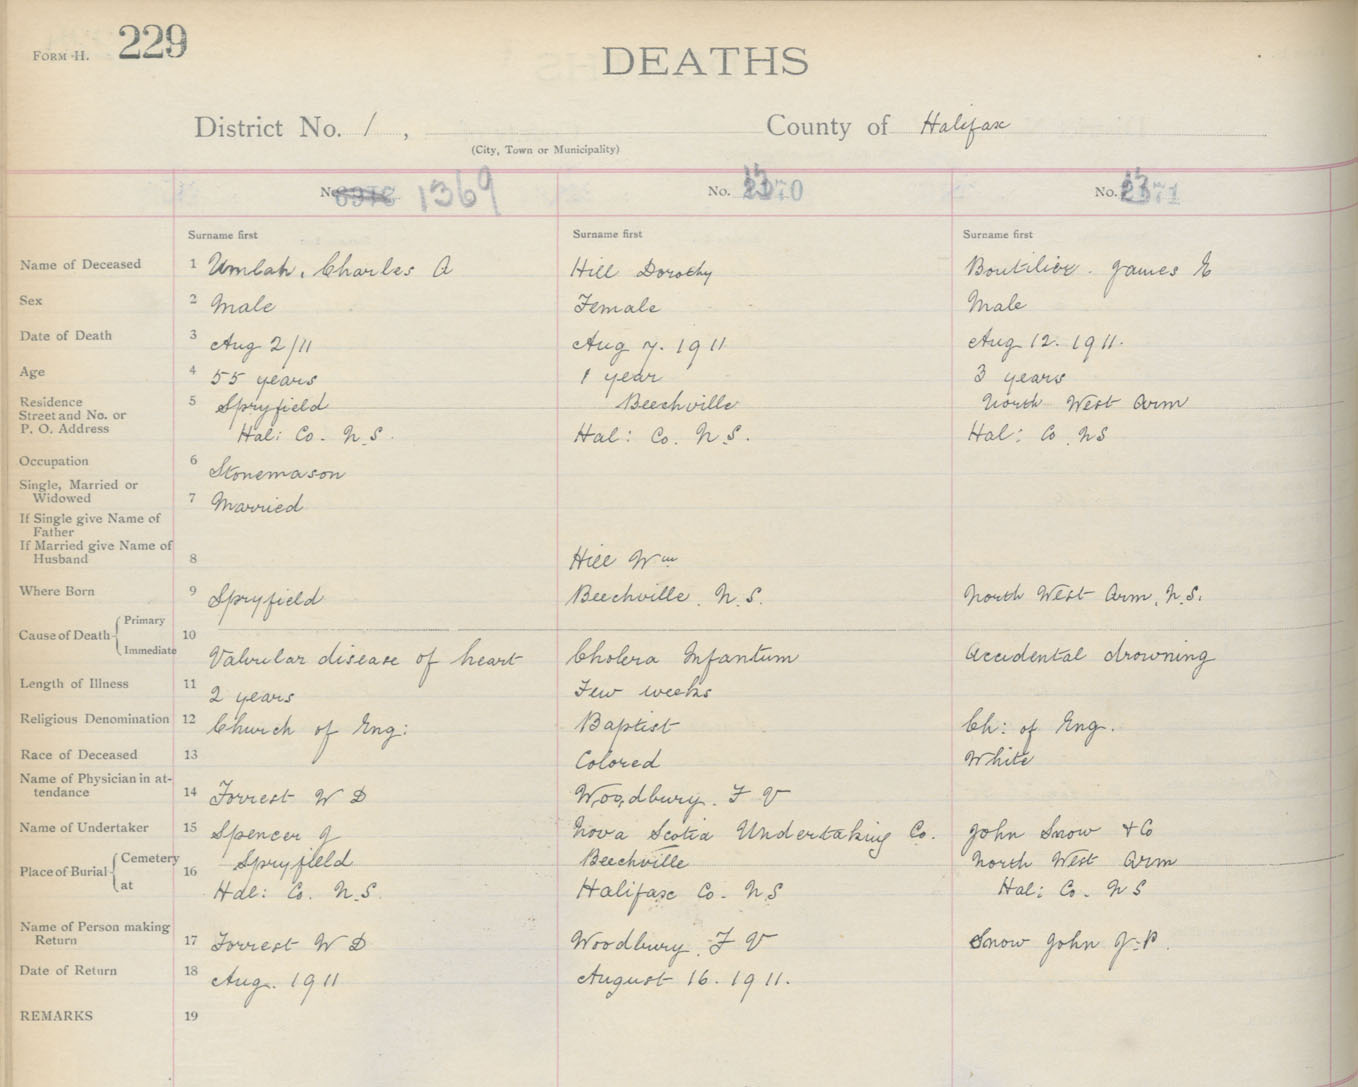 Form H. 229
DEATHS
District No. 1 , County of Halifax
(City, Town or Municipality)
No. 1369 No. 1370 No. 1371
Surname first Surname first Surname first
Name of Deceased 1 Umlah, Charles A Hill Dorothy Boutilier. James E
Sex 2 Male Female Male
Date of Death 3 Aug 2/11 Aug 7. 1911 Aug 12. 1911.
Age 4 55 years 1 year 3 years
Residence 5 Spryfield Beechville North West Arm
Street and No. or
P. O. Address Hal: Co. N.S. Hal: Co. N.S. Hal: Co. NS
Occupation 6 Stonemason
Single, Married or
Widowed 7 Married
If Single give Name of
Father
If Married give Name of
Husband 8 Hill Wm
Where Born 9 Spryfield Beechville. N.S. North West Arm, N.S.
Cause of Death Primary 10
Immediate Valvular disease of heart Cholera Infantum Accidental drowning
Length of Illness 11 2 years Few weeks
Religious Denomination 12 Church of Eng: Baptist Ch: of Eng.
Race of Deceased 13 Colored White
Name of Physician in at-
tendance 14 Forrest W D Woodbury. F V
Name of Undertaker 15 Spencer J Nova Scotia Undertaking Co. John Snow & Co
Place of Burial Cemetery 16 Spryfield Beechville North West Arm
at Hal: Co. N.S. Halifax Co. N S Hal: Co. N S
Name of Person making
Return 17 Forrest W D Woodbury. F V Snow John
Date of Return 18 Aug. 1911 August 16. 1911.
REMARKS 19